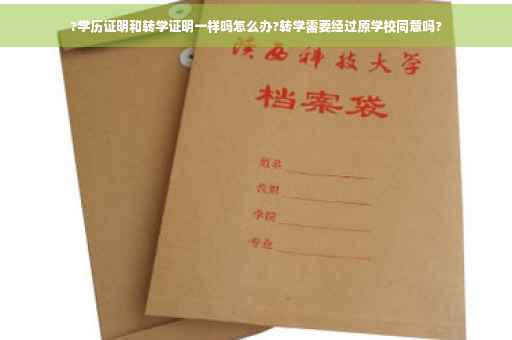 ?学历证明和转学证明一样吗怎么办?转学需要经过原学校同意吗?
陕西科技大学
档案袋
姓名
学院
专业